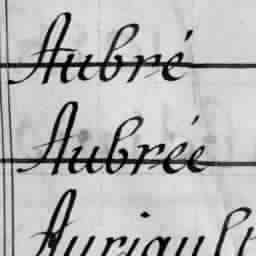 Aubré
Aubrée
Auriault